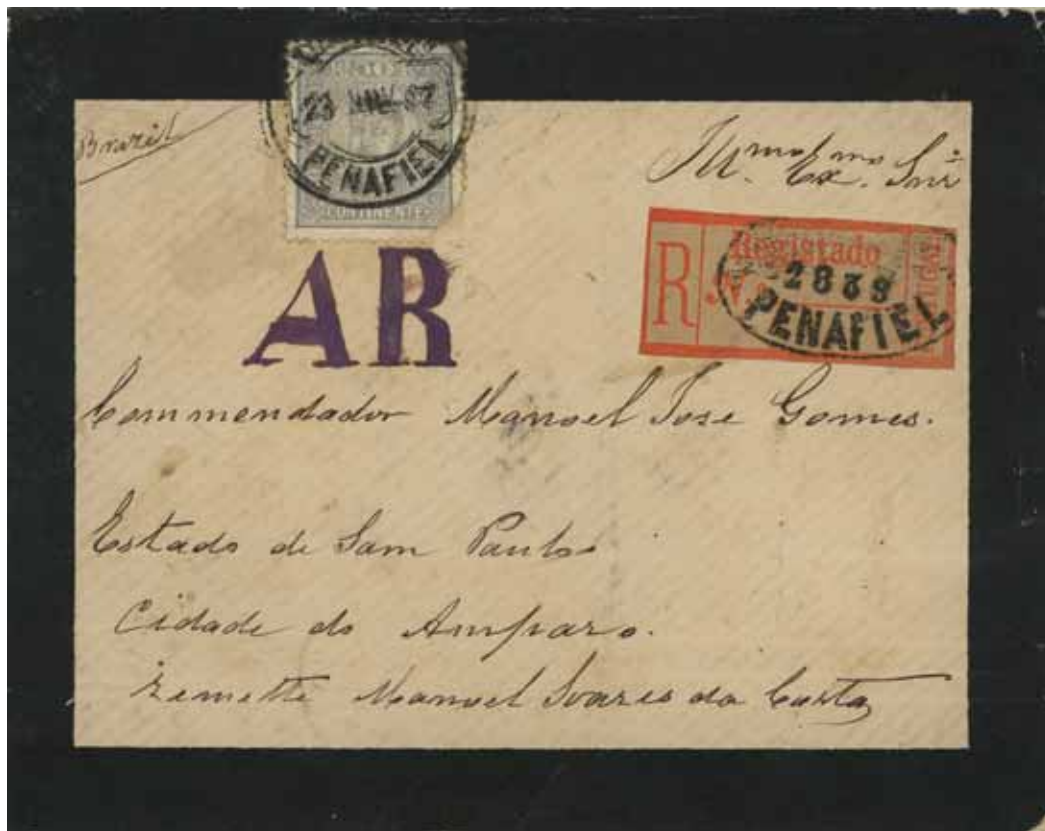 Brazil
23 97
PENAFIEL
CONTINENTE
Illmo Exmo Snr
R Registado
2839
PENAFIEL
AR
Commendador Manoel Jose Gomes.
Estado de Sam Paulo
Cidade do Amparo.
Remette Manoel Soares da Costa